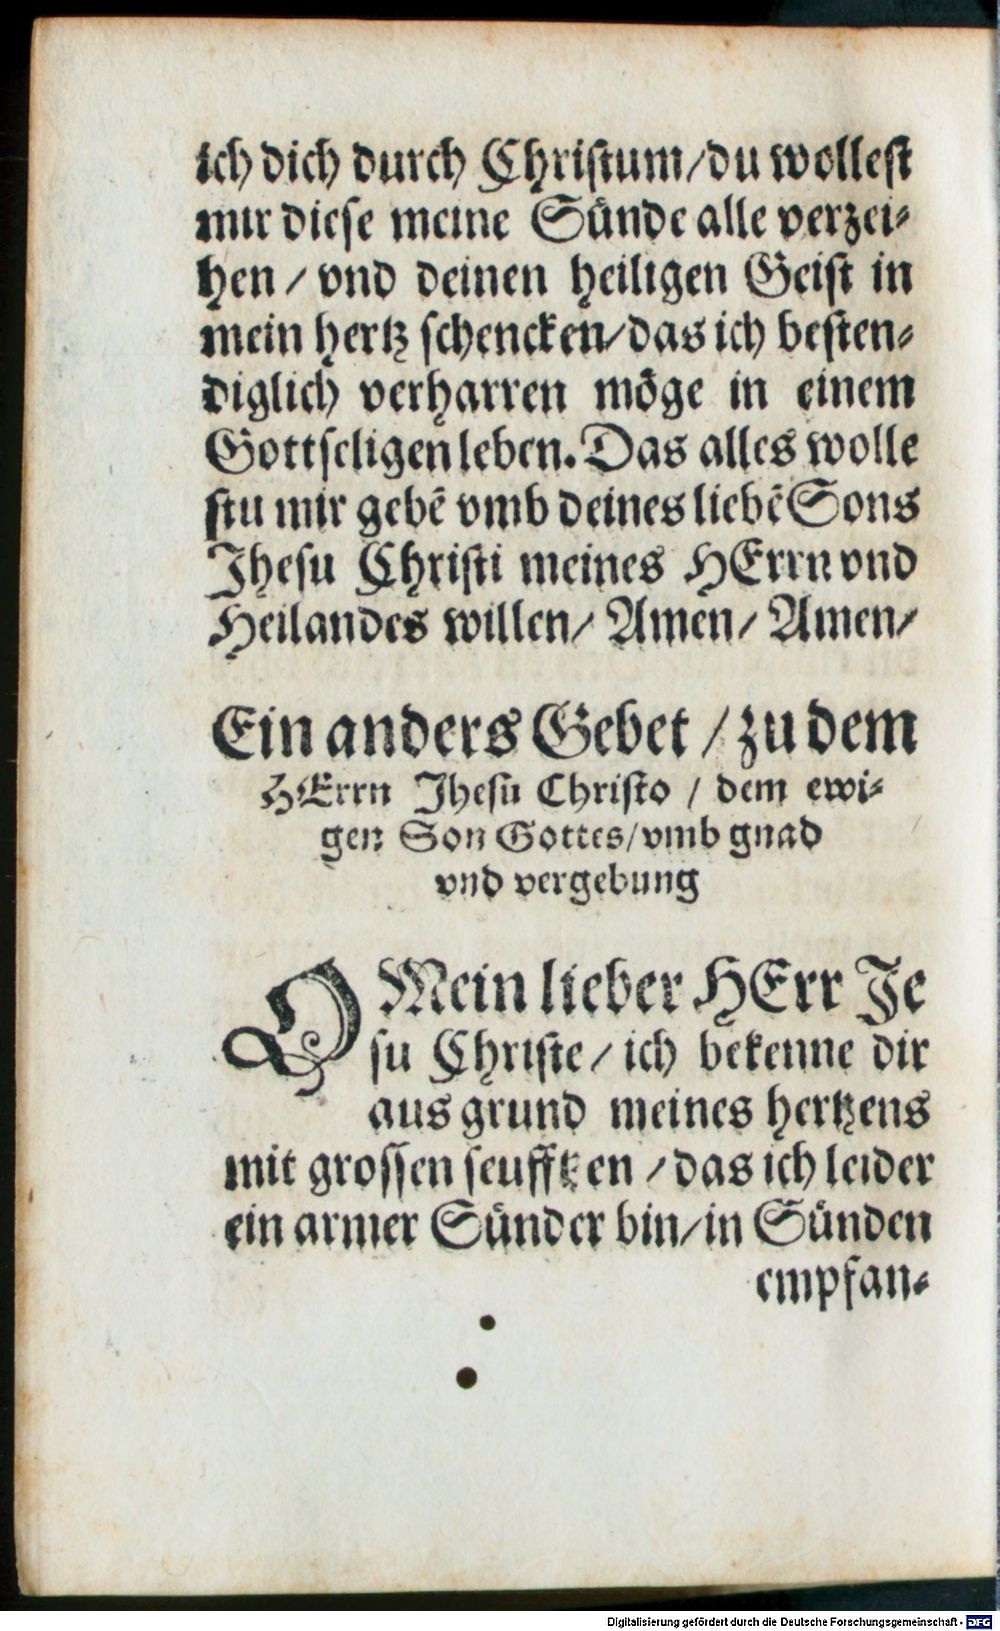 ich dich durch Christum/du wollest
mir diese meine Sünde alle verzei-
hen / vnd deinen heiligen Geist in
mein hertz schencken/das ich besten-
diglich verharren möge in einem
Gottseligen leben. Das alles wolle
stu mir gebē vmb deines liebē Sons
Jhesu Christi meines HErrn vnd
Heilandes willen/ Amen/ Amen/
Ein anders Gebet / zu dem
HErrn Jhesu Christo / dem ewi-
gen Son Gottes/vmb gnad
vnd vergebung
O Mein lieber HErr Je
su Christe/ ich bekenne dir
aus grund meines hertzens
mit grossen seufftzen /das ich leider
ein armer Sünder bin/in Sünden
empfan-
Digitalisierung gefördert durch die Deutsche Forschungsgemeinschaft - DFG